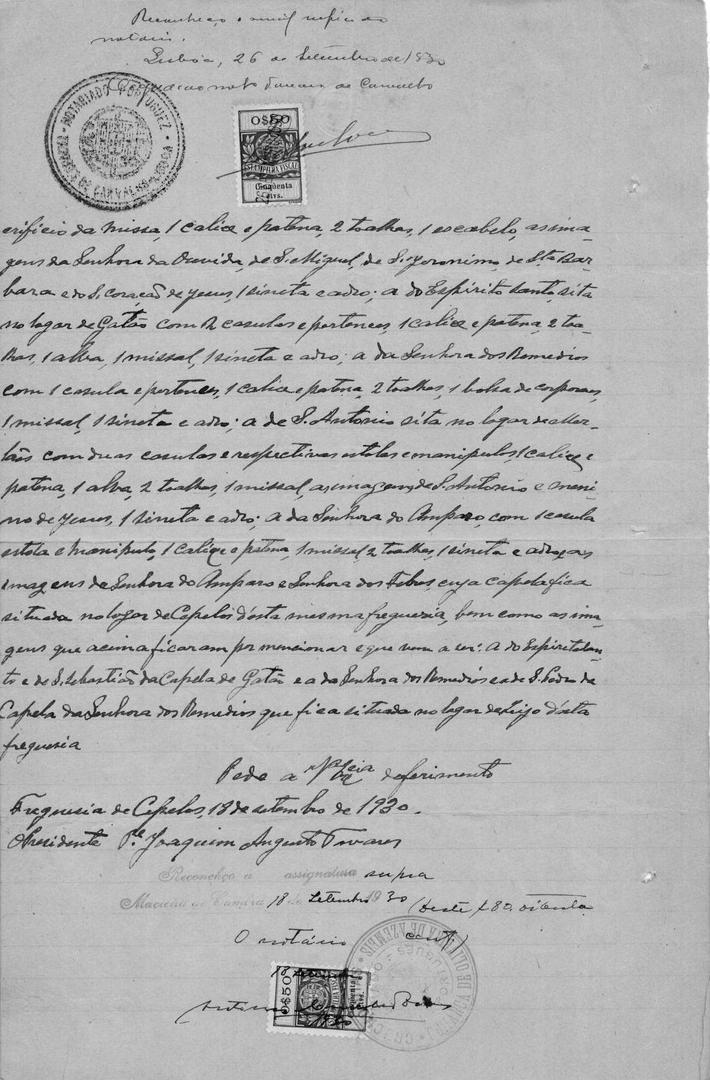 Reconheço o sinal supra do
notário.
Lisboa, 26 de Setembro de 1930
Tavares de Carvalho
NOTARIADO PORTUGUEZ
TAVARES DE CARVALHO LISBOA
0$50
ESTAMPILHA FISCAL
Cinquenta
ctvs.
crificio da missa, 1 calice e patena, 2 toalhas, 1 escabelo, as ima-
gens da Senhora da Ouvida, de S. Miguel, de S. Jeronimo, de Sta Bar-
bara e do S. coração de Jesus, 1 sineta e adro; a do Espirito Santo, sita
no logar de Gatão com 2 casulas e pertences, 1 calice e patena, 2 toa-
lhas, 1 alva, 1 missal, 1 sineta e adro; a da Senhora dos Remedios
com 1 casula e pertences, 1 calice e patena, 2 toalhas, 1 bolsa de corporaes,
1 missal, 1 sineta e adro; a de S. Antonio sita no logar de Mer-
lães com duas casulas e respectivas estolas e manipulos, 1 calice e
patena, 1 alva, 2 toalhas, 1 missal, as imagens de S. Antonio e meni-
no de Jesus, 1 sineta e adro; a da Senhora do Amparo, com 1 casula
estola e manipulo, 1 calice e patena, 1 missal, 2 toalhas, 1 sineta e adro, as
imagens da Senhora do Amparo e Senhora das Febres, cuja capela fica
situada no logar de Cepelos d'esta mesma freguezia, bem como as ima-
gens que acima ficaram por mencionar e que vem a ser: a do Espirito San-
to e de S. Sebastião da Capela de Gatão e a da Senhora dos Remedios e a de S. Pedro da
Capela da Senhora dos Remedios que fica situada no logar de d'esta
freguesia
Pede a V. Excia deferimento
Freguesia de Cepelos, 18 de setembro de 1930.
O Presidente Pe. Joaquim Augusto Tavares
Reconheço a assignatura supra
Macieira de Cambra 18 de Setembro 1930
O notário
18 setembro
0$50
1930